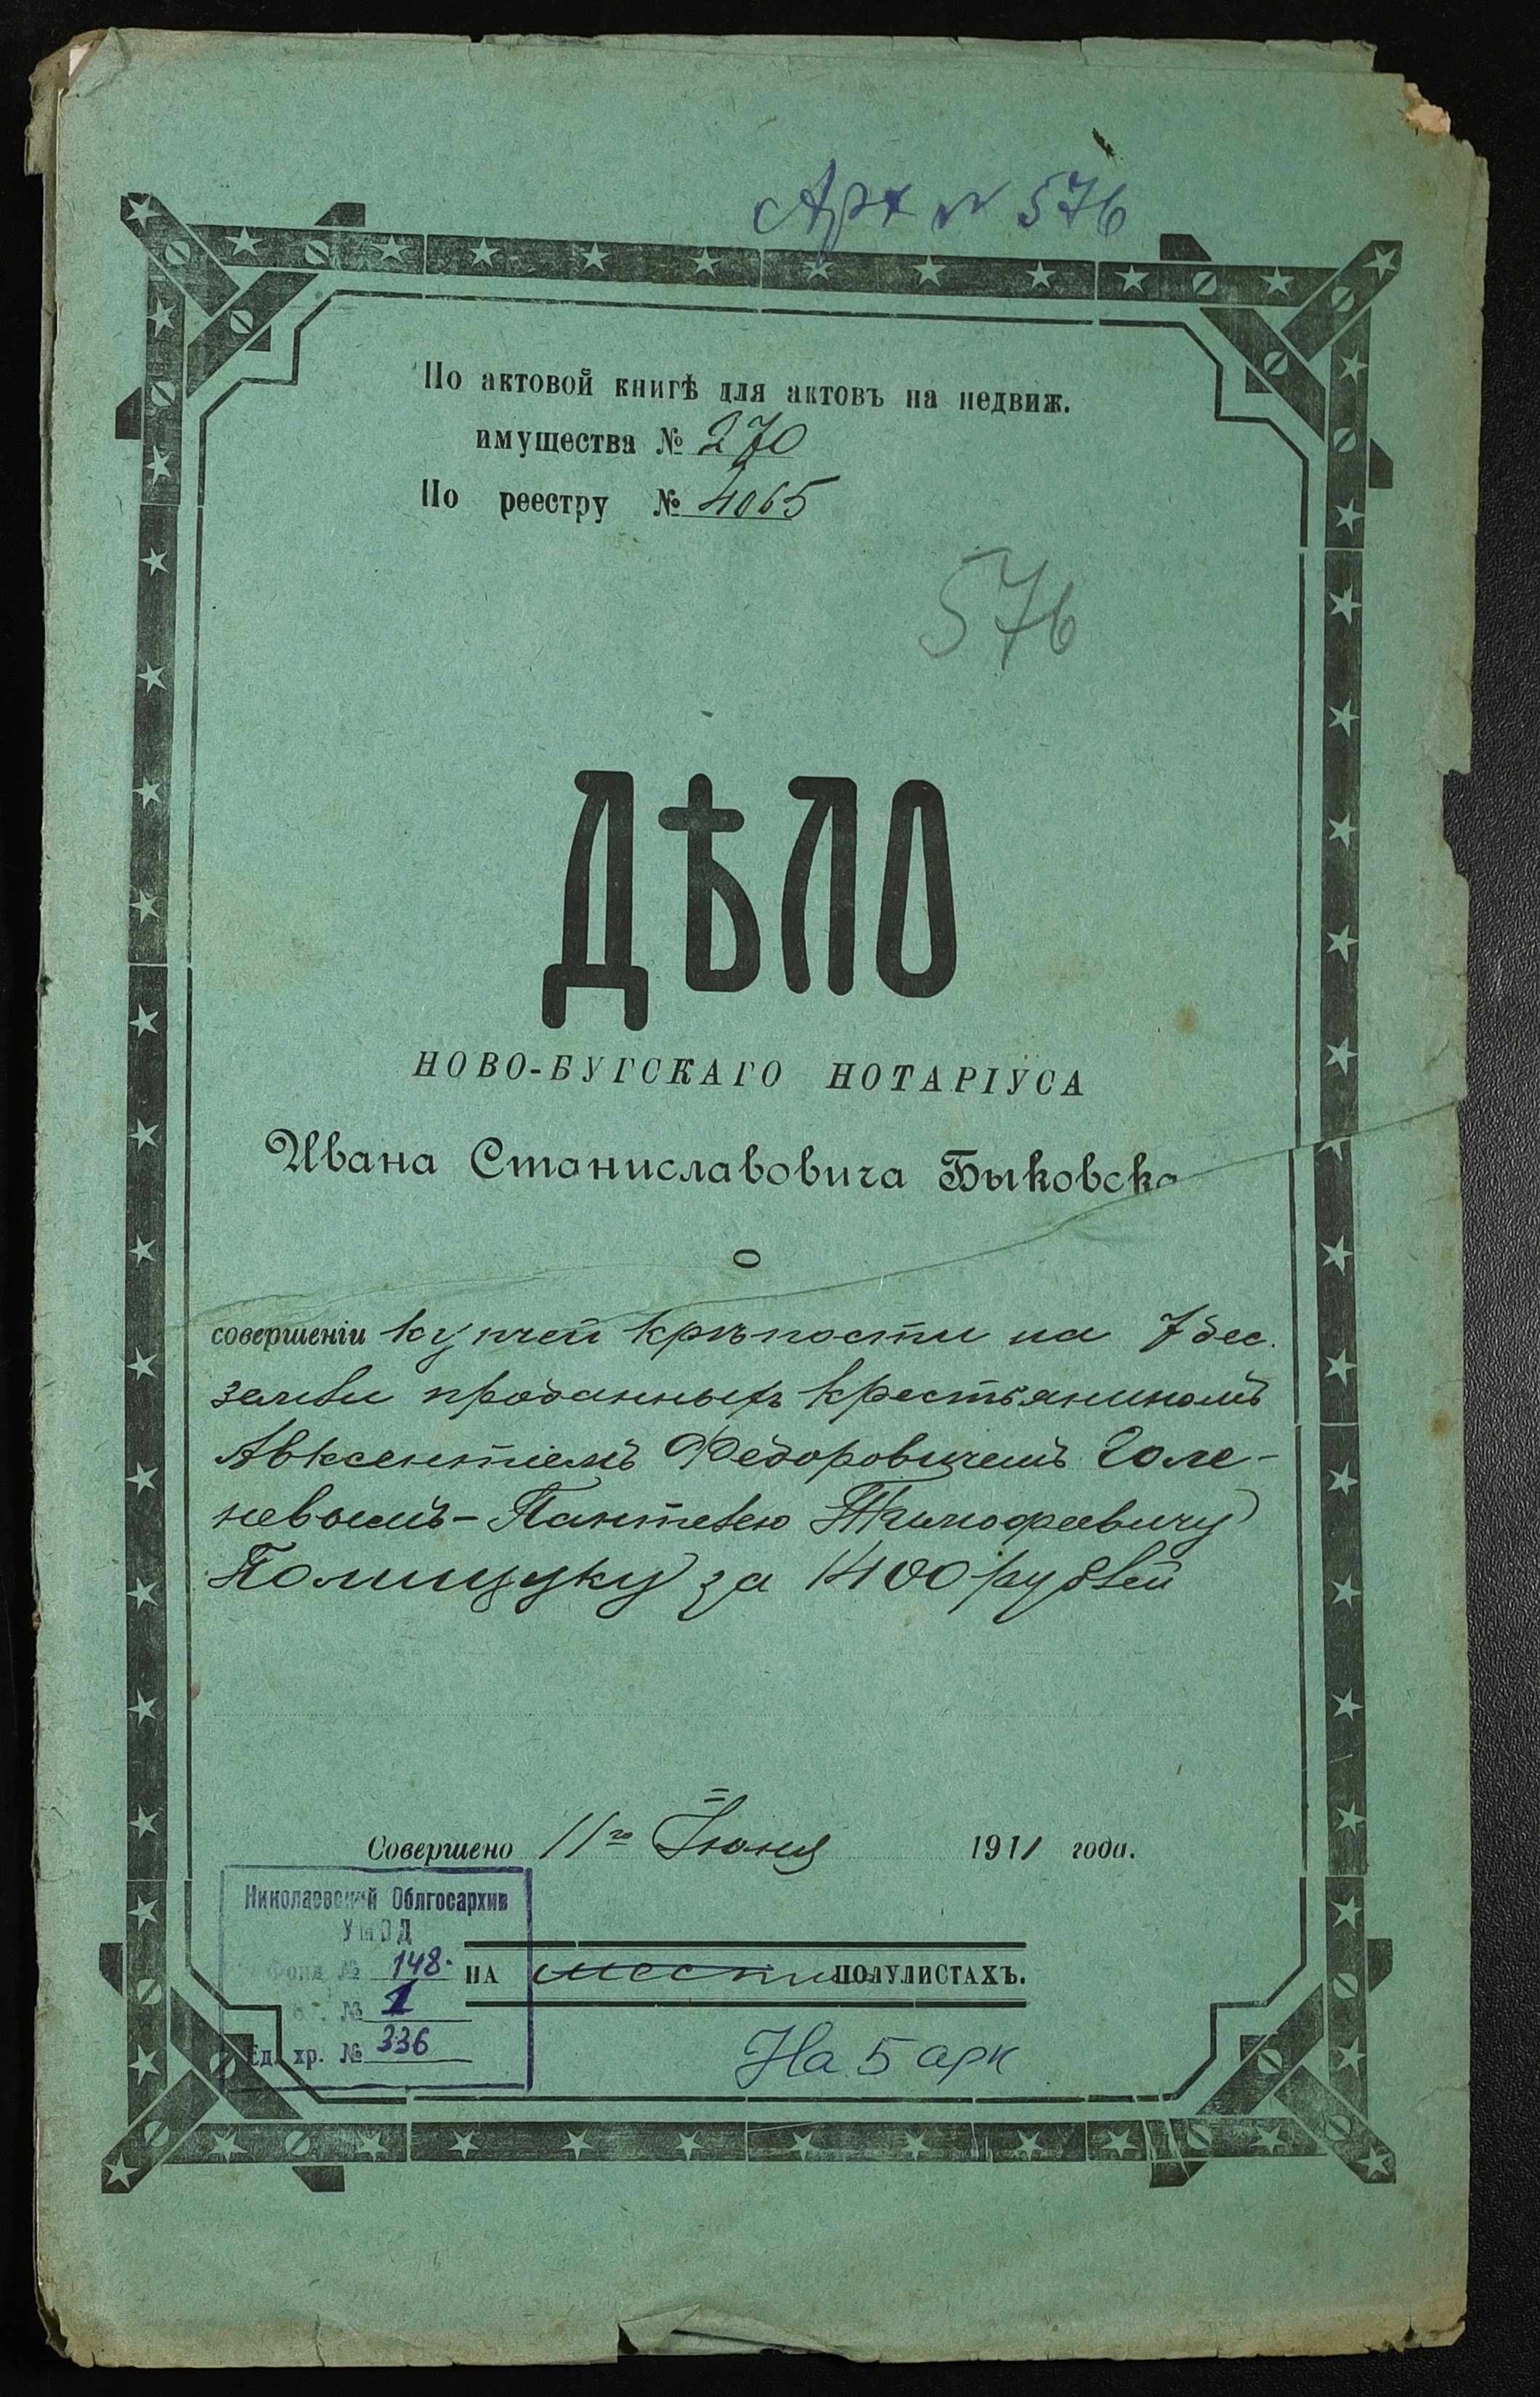 Арх № 576
По актовой книгѣ для актовъ на недвиж.
имущества № 270
По реестру № 4065
576
ДѢЛО
НОВО-БУГСКАГО НОТАРІУСА
Ивана Станиславовича Быковска
О
совершеніи купчей крѣпости на 7 дес.
земли проданныхъ крестьяниномъ
Авксентіемъ Ѳедоровичемъ Голе-
невымъ - Пантелею Тимофеевичу
Полищуку за 1400 рублей
Совершено 11го Іюня 1911 года.
Николаевский Облгосархив
УМВД
Фонд № 148.
№ 1
Ед. хр. № 336
НА шести ПОЛУЛИСТАХЪ.
На 5 арк